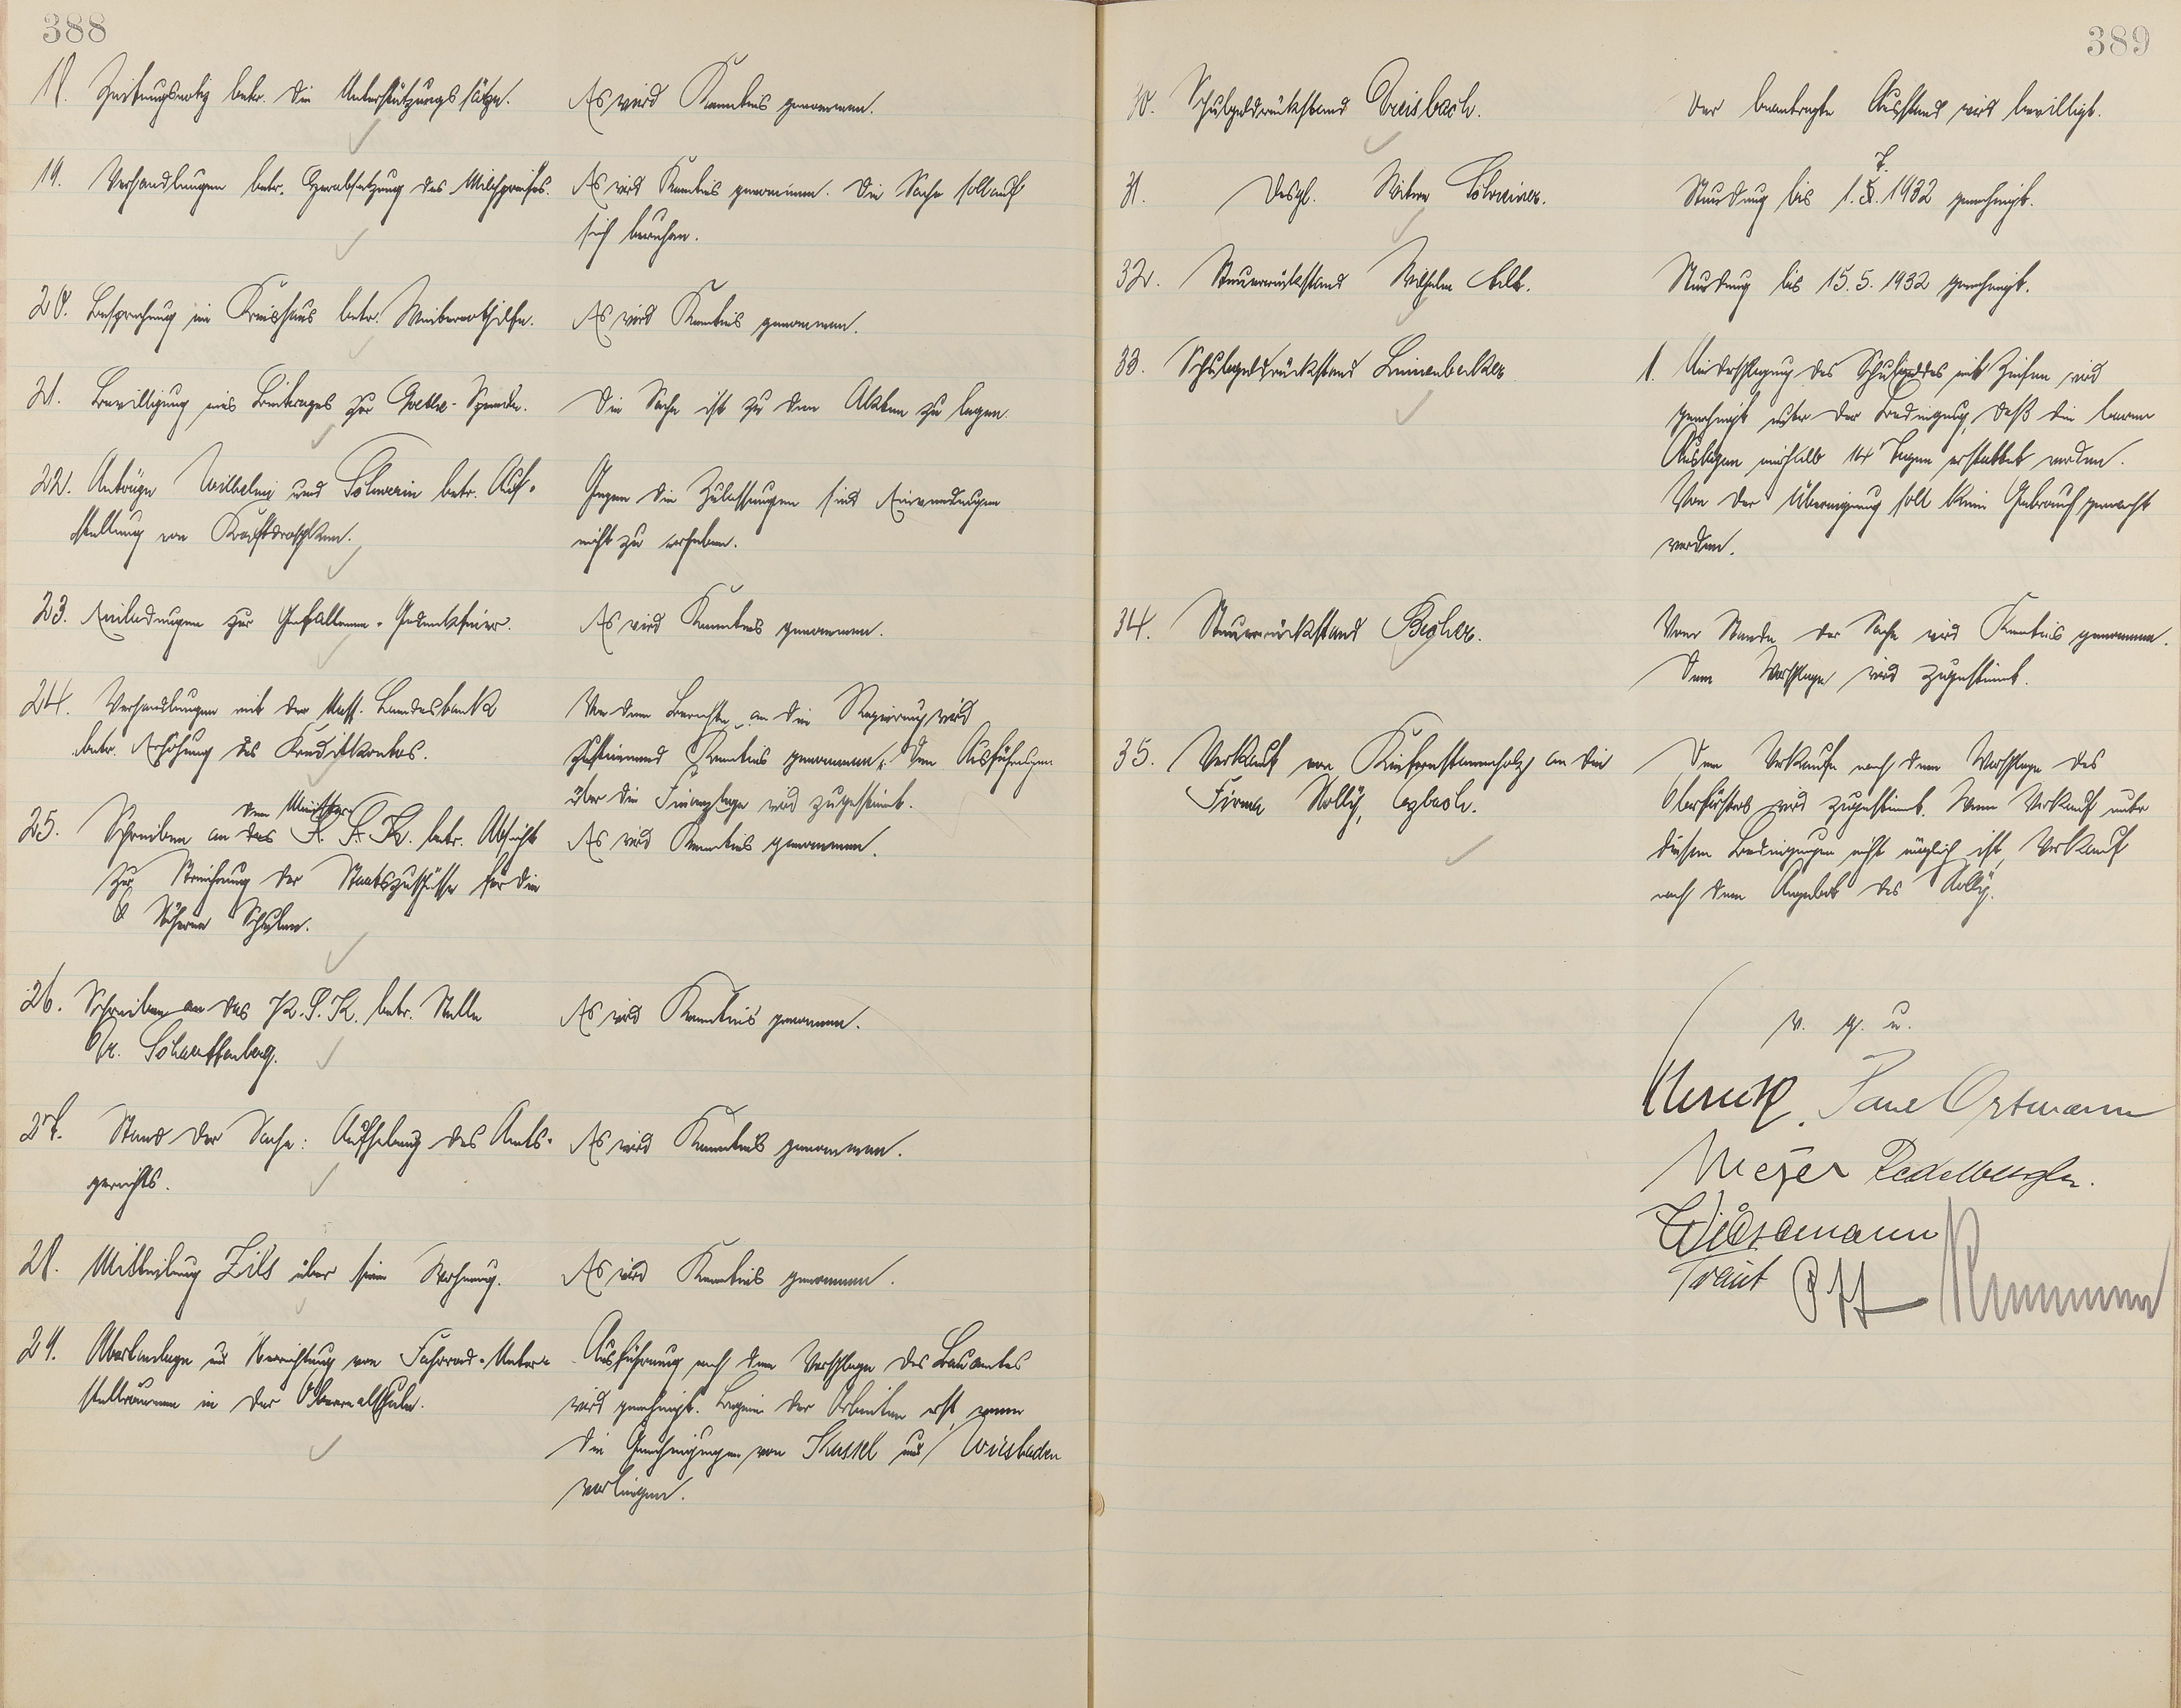 388
18. Zeitungsnotiz betr. die Unterstützungssätze.
Es wird Kenntnis genommen.
19. Verhandlungen betr. Herabsetzung des Milchpreises.
Es wird Kenntnis genommen. Die Sache soll auf
sich beruhen.
20. Besprechung im Kreishaus betr. Winternothilfe.
Es wird Kenntnis genommen.
21. Bewilligung eines Beitrages zur Goethe-Spende.
Die Sache ist zu den Akten zu legen.
22. Anträge Wilhelmi und Schwerin betr. Auf-
stellung von Kraftdroschken.
Gegen die Zulassungen sind Einwendungen
nicht zu erheben.
23. Einladungen zur Gefallenen-Gedenkfeier.
Es wird Kenntnis genommen.
24. Verhandlungen mit der Nass. Landesbank
betr. Erhöhung des Kreditkontos.
Von dem Berichte an die Regierung wird
zustimmend Kenntnis genommen. Den Ausführungen
über die Finanzlage wird zugestimmt.
25. Schreiben an das P. S. K. betr. Absicht
den Minister
zur Streichung der Staatszuschüsse für die
Höheren Schulen.
Es wird Kenntnis genommen.
26. Schreiben an das P. S. K. betr. Stelle
Dr. Scharffenberg.
Es wird Kenntnis genommen.
27. Stand der Sache: Aufhebung des Amts-
gerichts.
Es wird Kenntnis genommen.
28. Mitteilung Zils über seine Wohnung.
Es wird Kenntnis genommen.
29. Abortanlage und Herrichtung von Fahrrad-Unter-
stellräumen in der Oberrealschule.
Ausführung nach dem Vorschlage des Bauamtes
wird genehmigt. Beginn der Arbeiten erst, wenn
die Genehmigungen von Kassel und Wiesbaden
vorliegen.
389
30. Schulgeldrückstand Dreisbach.
Der beantragte Ausstand wird bewilligt.
31. Desgl. Witwe Schreiner.
Stundung bis 1. 7. 1932 genehmigt.
32. Steuerrückstand Wilhelm Alb.
Stundung bis 15. 5. 1932 genehmigt.
33. Schulgeldrückstand Linnenbecker
1. Niederschlagung des Schulgeldes mit Zinsen wird
genehmigt unter der Bedingung, daß die baren
Auslagen innerhalb 14 Tagen erstattet werden.
Von der Übereignung soll kein Gebrauch gemacht
werden.
34. Steuerrückstand Becher.
Vom Stande der Sache wird Kenntnis genommen.
Dem Vorschlage wird zugestimmt.
35. Verkauf von Kiefernstammholz an die
Firma Nolly, Asbach.
Dem Verkaufe nach dem Vorschlage des
Oberförsters wird zugestimmt. Wenn Verkauf unter
diesen Bedingungen nicht möglich ist, Verkauf
nach dem Angebot des Nolly.
v. g. u.
Paul Ortmann
Meyer
Wiesemann
Traut